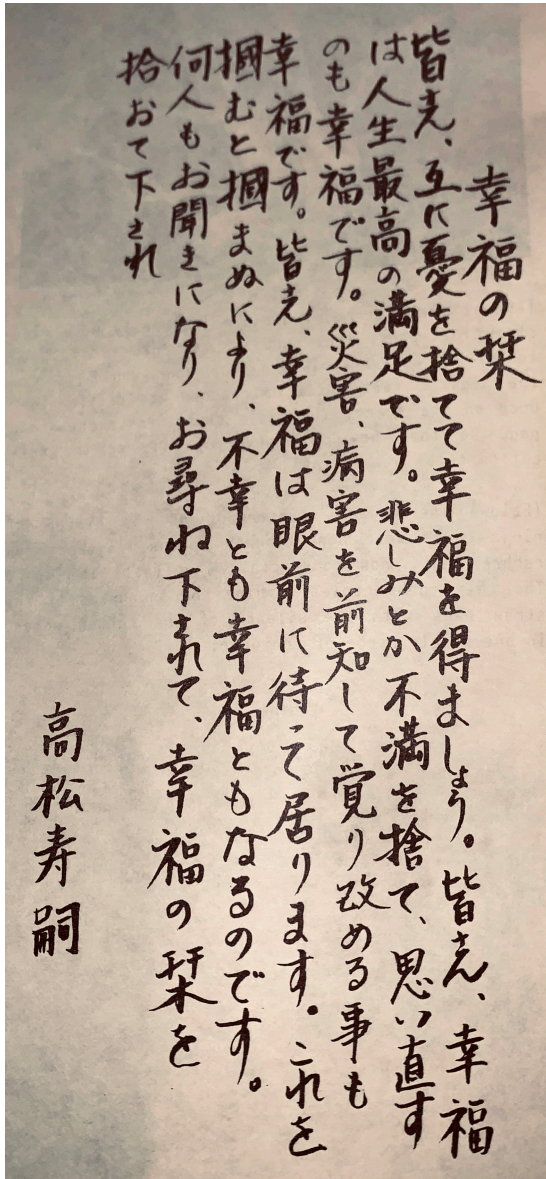 幸福の栞
皆さん、互に憂を捨てて幸福を得ましょう。皆さん、幸福
は人生最高の満足です。悲しみとか不満を捨て、思い直す
のも幸福です。災害、病害を前知して覚り改める事も
幸福です。皆さん、幸福は眼前に待って居ります。これを
掴むと掴まぬにより、不幸とも幸福ともなるのです。
何人もお聞きになり、お尋ね下されて、幸福の栞を
拾おて下され
高松寿嗣